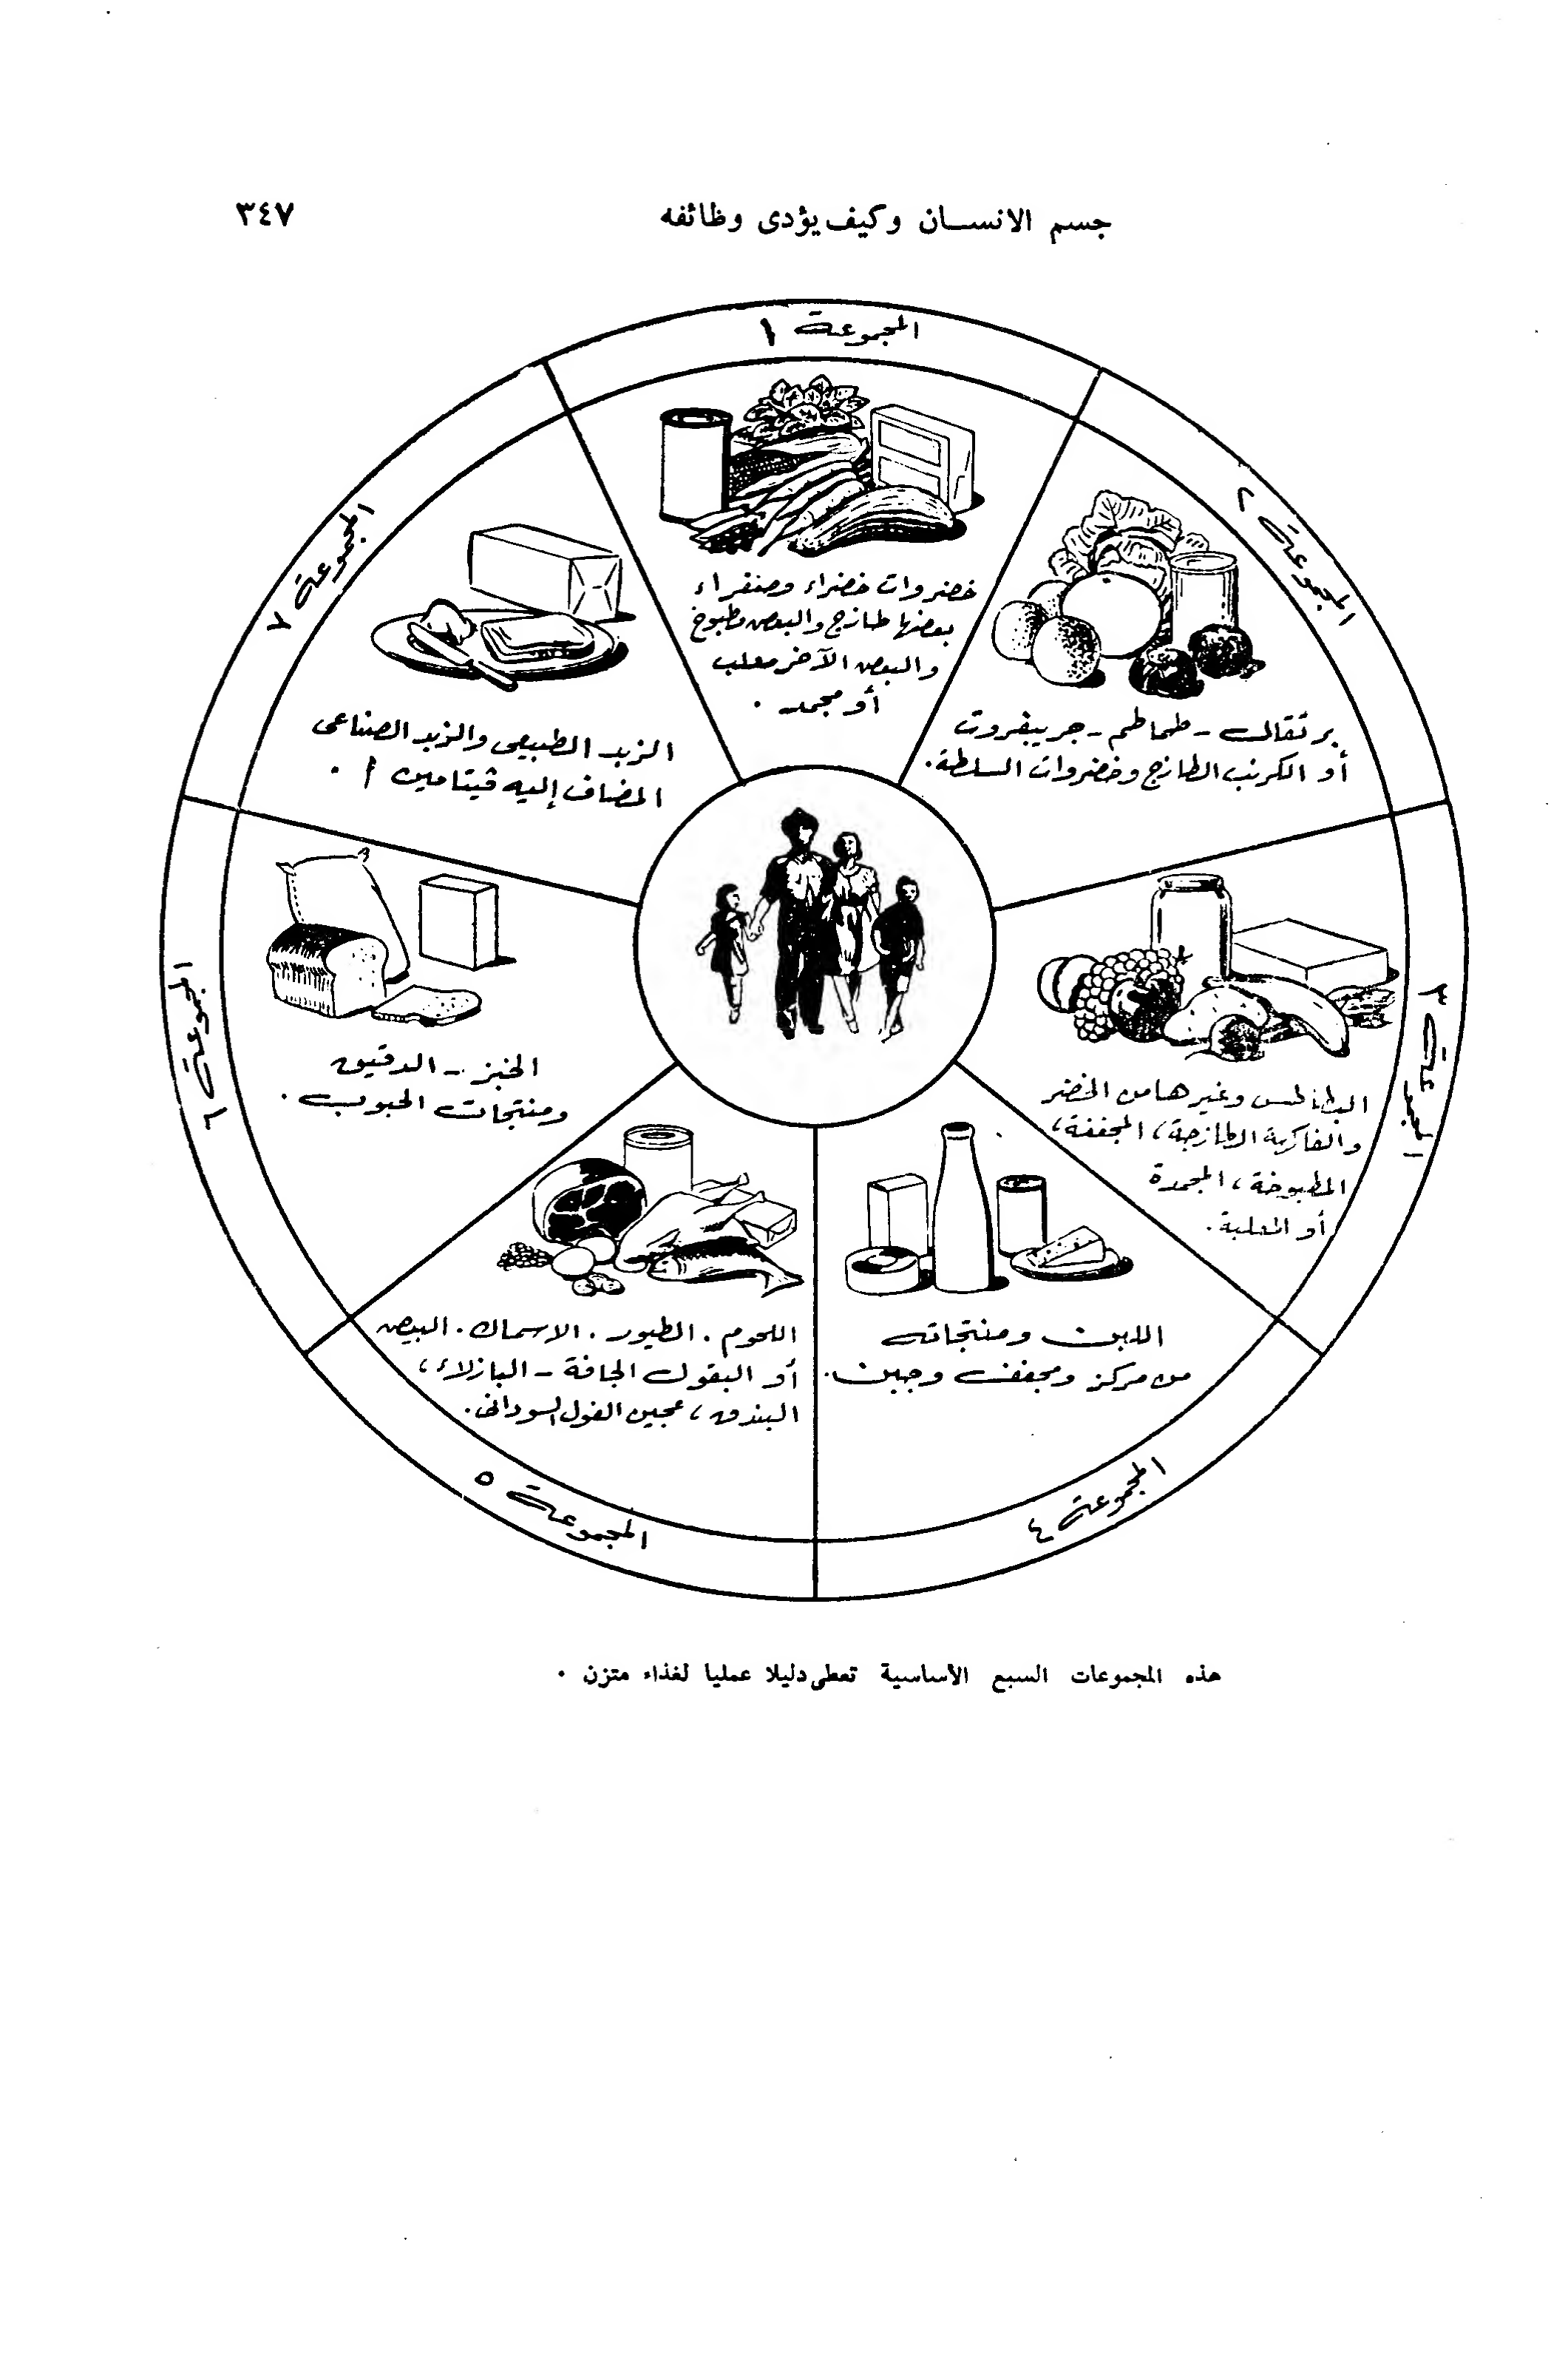 جسم الانسان وكيف يؤدى وظائفه ٣٤٧
المجموعة ١
خضروات خضراء وصفراء
بعضها طازج والبعض مطبوخ
والبعض الآخر معلب
أو مجمد .
المجموعة ٢
برتقال - طماطم - جريبفروت
أو الكرنب الطازج وخضروات السلطة.
المجموعة ٣
البطاطس وغيرها من الخضر
والفاكهة الطازجة، المجففة،
المطبوخة، المجمدة
أو المعلبة.
المجموعة ٤
اللبن ومنتجاته
من مركز ومجفف وجبن.
المجموعة ٥
اللحوم . الطيور . الاسماك . البيض
أو البقول الجافة - البازلاء،
البندق، عجين الفول السودانى.
المجموعة ٦
الخبز - الدقيق
ومنتجات الحبوب .
المجموعة ٧
الزبد الطبيعى والزبد الصناعى
المضاف إليه ڤيتامين أ .
هذه المجموعات السبع الأساسية تعطى دليلا عمليا لغذاء متزن .